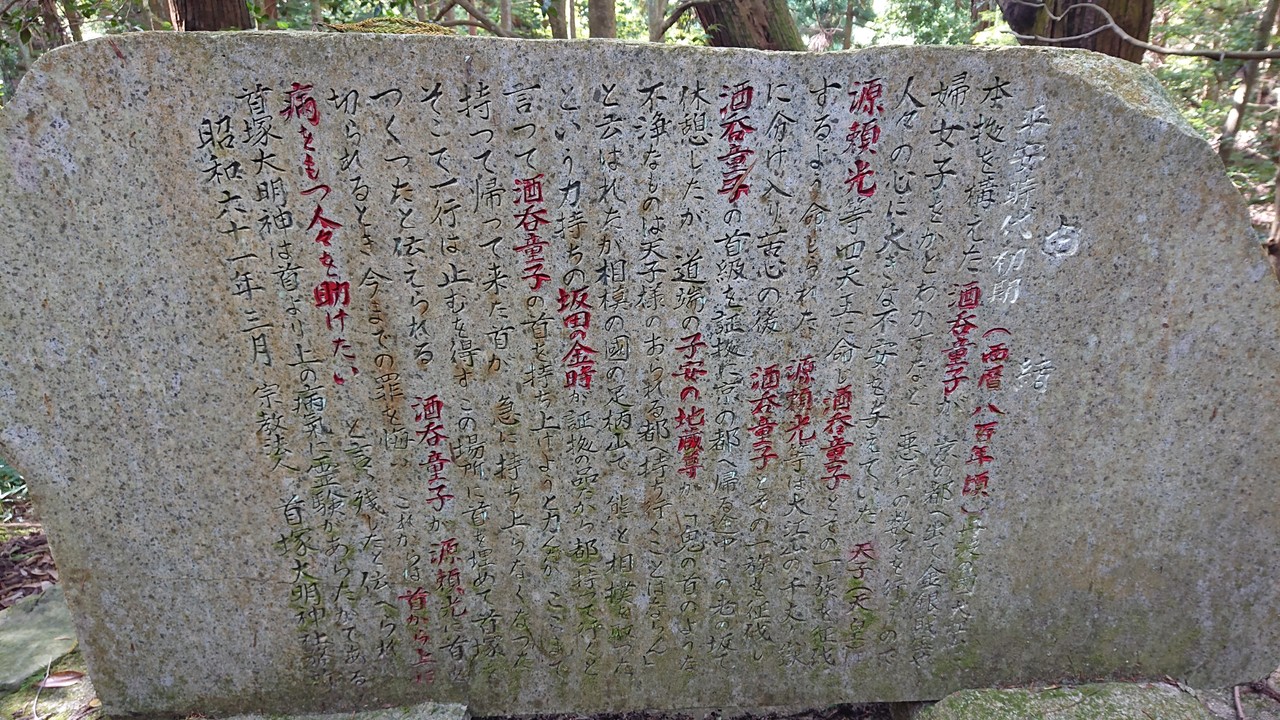 由緒
平安時代初期(西暦八百年頃)丹波の国大江山
本拠を構えた酒呑童子が京の都へ出て金銀財宝や
婦女子をかどわかすなど 悪行の数々を行
人々の心に大きな不安を与えていた 天子(天皇)
源頼光等四天王に命じ酒呑童子とその一族を征伐
するよう命じられた 源頼光等は大江山の千丈ヶ嶽
に分け入り苦心の後 酒呑童子とその一族を征伐し
酒呑童子の首級を証拠に京の都へ帰る途中この老の坂で
休憩したが 道端の子安の地蔵尊が「鬼の首のような
不浄なものは天子様のおられる都へ持ち行くことはならん」
と云はれたが相模の國の足柄山で 熊と相撲を取った
という力持ちの坂田の金時が 証拠の品だから都へ持って行くと
言つて酒呑童子の首を持ち上げようと力んだが ここまで
持つて帰って来た首が 急に持ち上らなくなった
そこで一行は止むを得ずこの場所に首を埋めて首塚
つくつたと伝えられる 酒呑童子が源頼光に首
切られるとき 今までの罪を悔い これからは首から上
病をもつ人々を助けたい と言い残したと伝へられ
首塚大明神は首より上の病気に霊験があらたかである
昭和六十一年三月 宗教法人 首塚大明神